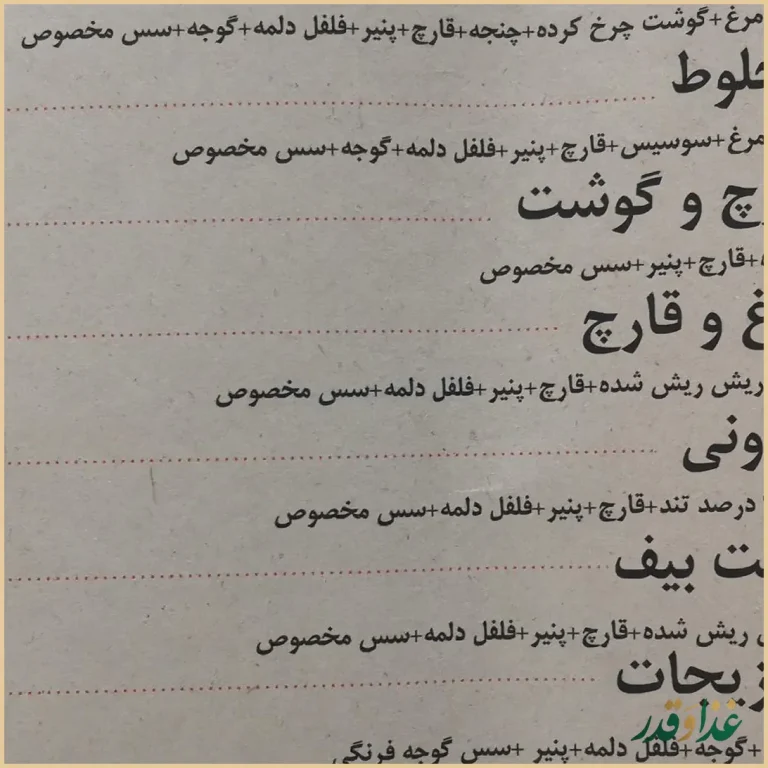 مرغ+گوشت چرخ کرده+چنجه+قارچ+پنیر+فلفل دلمه+گوجه+سس مخصوص
خلوط
مرغ+سوسیس+قارچ+پنیر+فلفل دلمه+گوجه+سس مخصوص
چ و گوشت
+قارچ+پنیر+سس مخصوص
غ و قارچ
ریش ریش شده+قارچ+پنیر+فلفل دلمه+سس مخصوص
ونی
درصد تند+قارچ+پنیر+فلفل دلمه+سس مخصوص
ت بیف
ریش شده+قارچ+پنیر+فلفل دلمه+سس مخصوص
زیجات
غذا و قدر
+گوجه+فلفل دلمه+پنیر +سس گوجه فرنگی